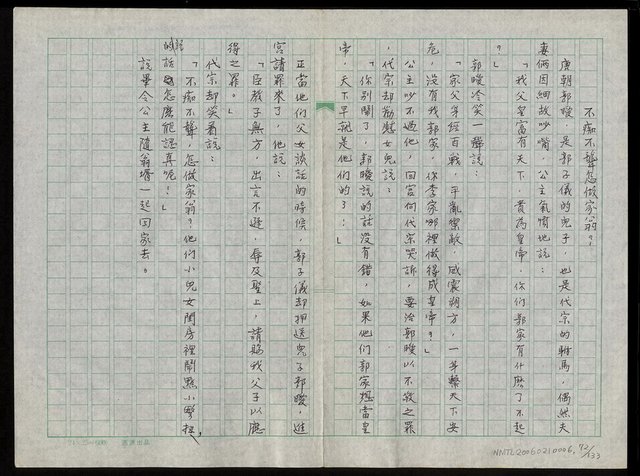 不痴不聾怎做家翁？
唐朝郭曖，是郭子儀的兒子，也是代宗的駙馬，偶然夫
妻倆因細故吵嘴，公主氣憤地說：
「我父皇富有天下，貴為皇帝，你們郭家有什麼了不起
？」
郭曖冷笑一聲說：
「家父身經百戰，平亂禦敵，威震朔方，一身繫天下安
危，沒有我郭家，你李家哪裡做得成皇帝？」
公主吵不過他，回宮向代宗哭訴，要治郭曖以不敬之罪
，代宗却勸慰女兒說：
「你別鬧了，郭曖說的話沒有錯，如果他們郭家想當皇
帝，天下早就是他們的了…」
正當他們父女談話的時候，郭子儀却押送兒子郭曖，進
宮請罪來了，他說：
「臣教子無方，出言不遜，辱及聖上，請賜我父子以應
得之罪。」
代宗却笑着說：
「不痴不聾，怎做家翁？他們小兒女閨房裡鬧點小彆扭，
的話怎麼能認真呢！」
說畢令公主隨翁壻一起回家去。
NMTL20060210006
72/133